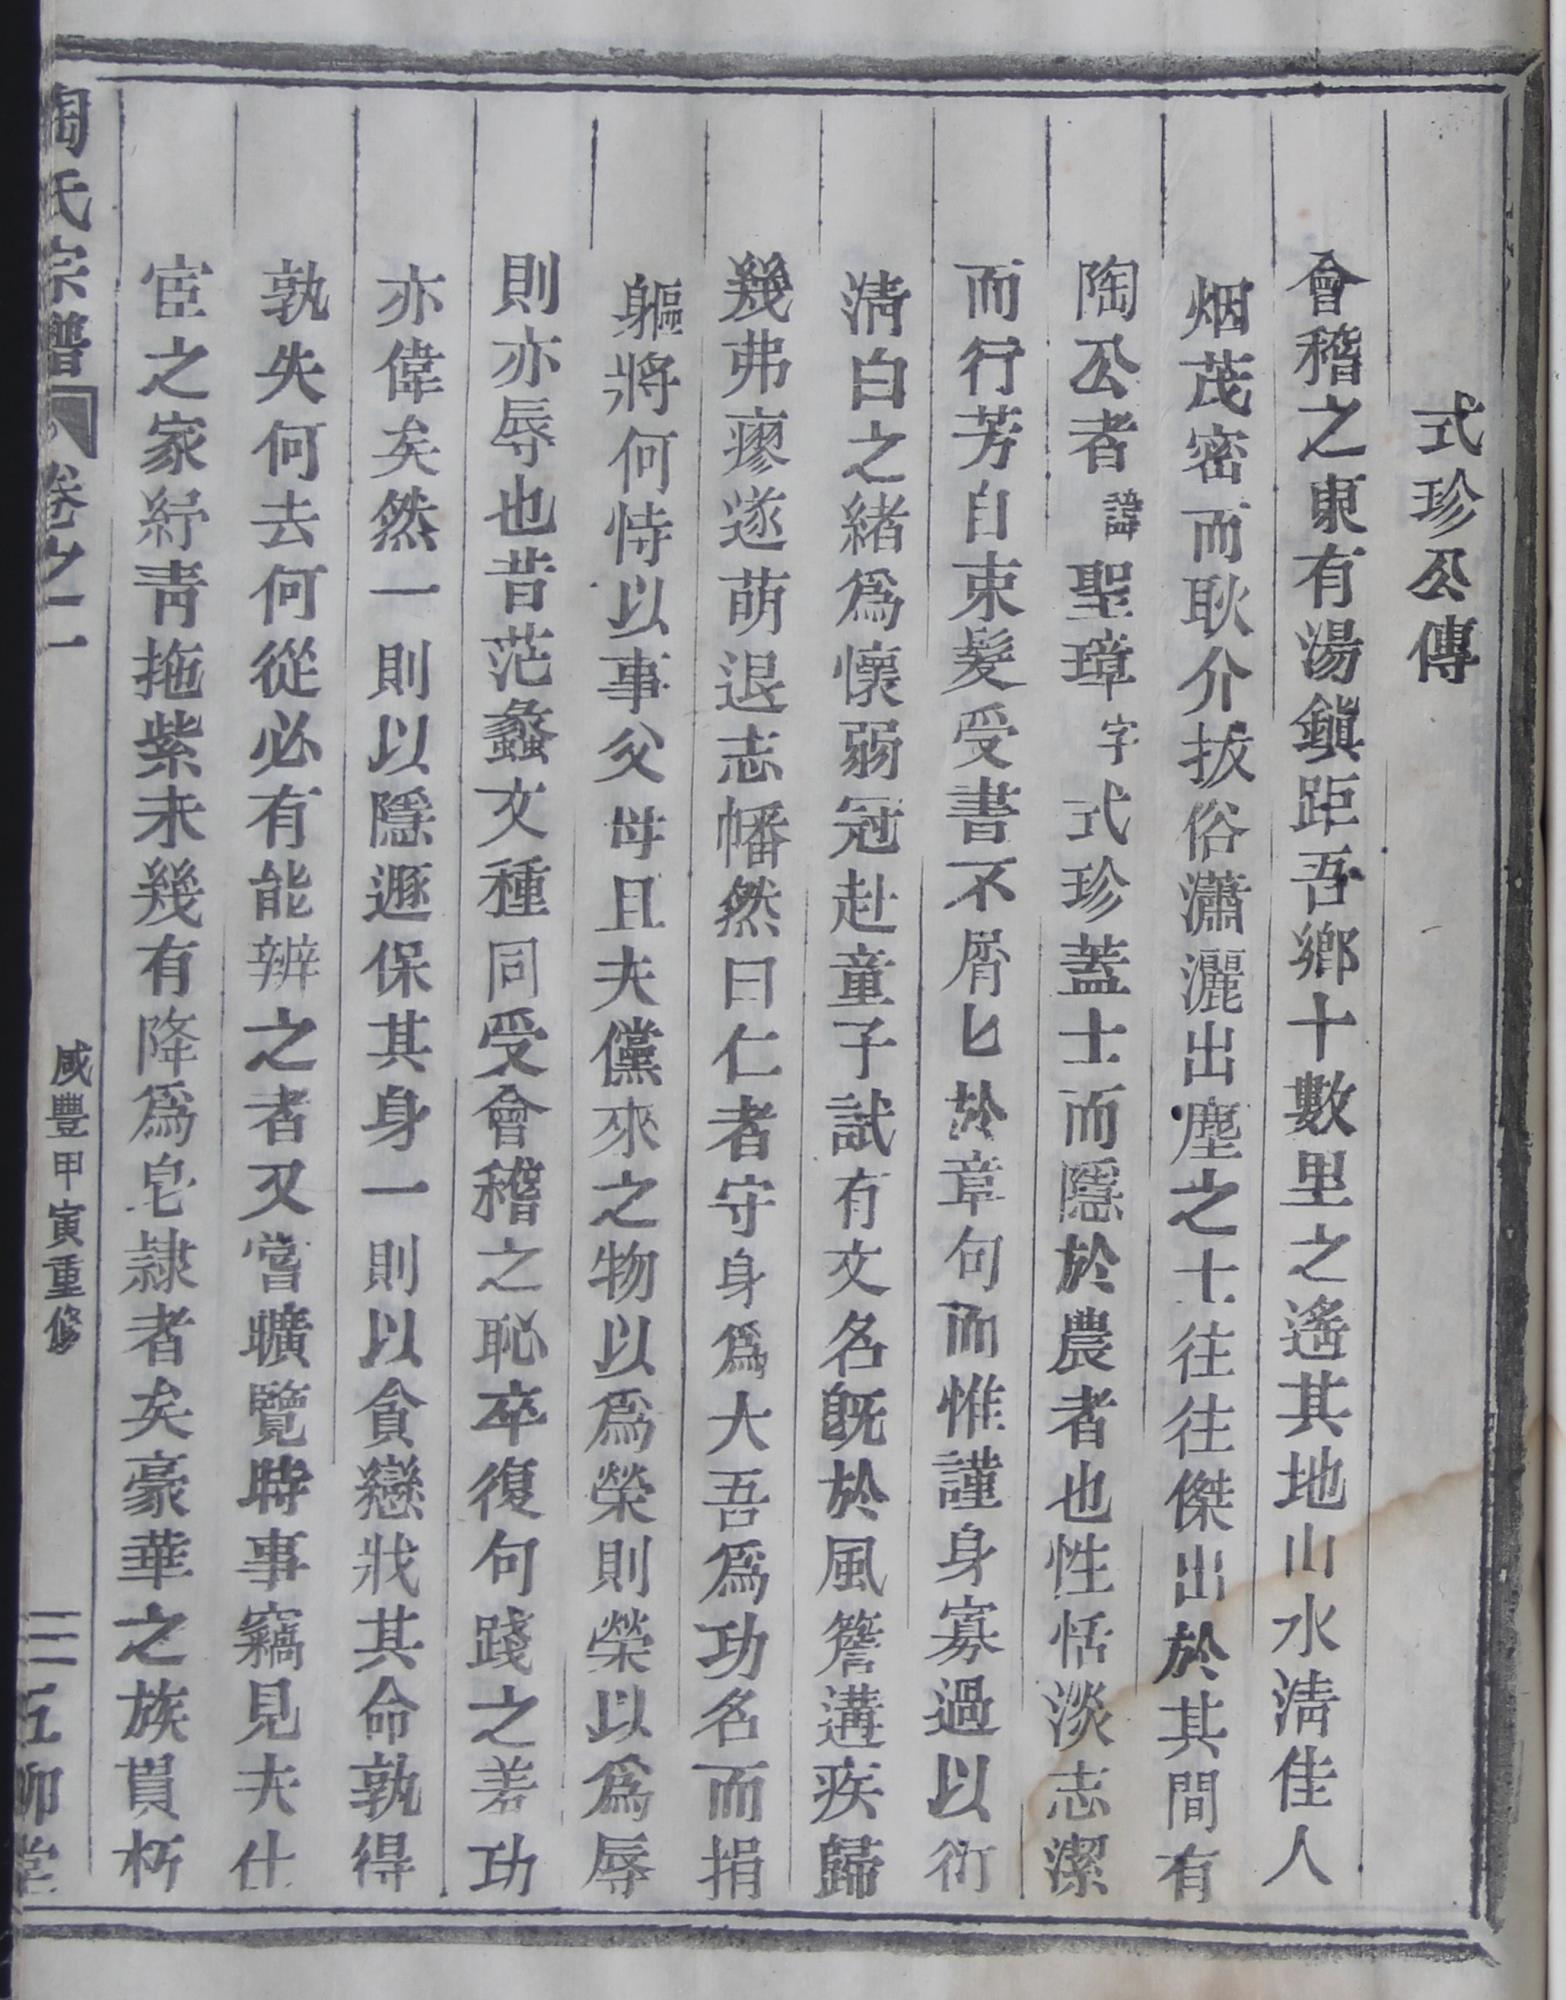 式珍公傳
會稽之東有湯鎭距吾鄉十數里之遙其地山水淸佳人
烟茂密而耿介拔俗瀟灑出塵之士往往傑出於其間有
陶公者諱聖璋字式珍蓋士而隱於農者也性恬淡志潔
而行芳自束髮受書不屑匕於章句而惟謹身寡過以衍
淸白之緒爲懷弱冠赴童子試有文名旣於風簷遘疾歸
幾弗瘳遂萌退志幡然曰仁者守身爲大吾爲功名而捐
軀將何恃以事父母且夫儻來之物以爲榮則榮以爲辱
則亦辱也昔范蠡文種同受會稽之恥卒復句踐之羞功
亦偉矣然一則以隱遯保其身一則以貪戀戕其命孰得
孰失何去何從必有能辨之者又嘗曠覽時事竊見夫仕
宦之家紆靑拖紫未幾有降爲皂隷者矣豪華之族貫朽
陶氏宗譜 卷之一 咸豐甲寅重修 三 五柳堂